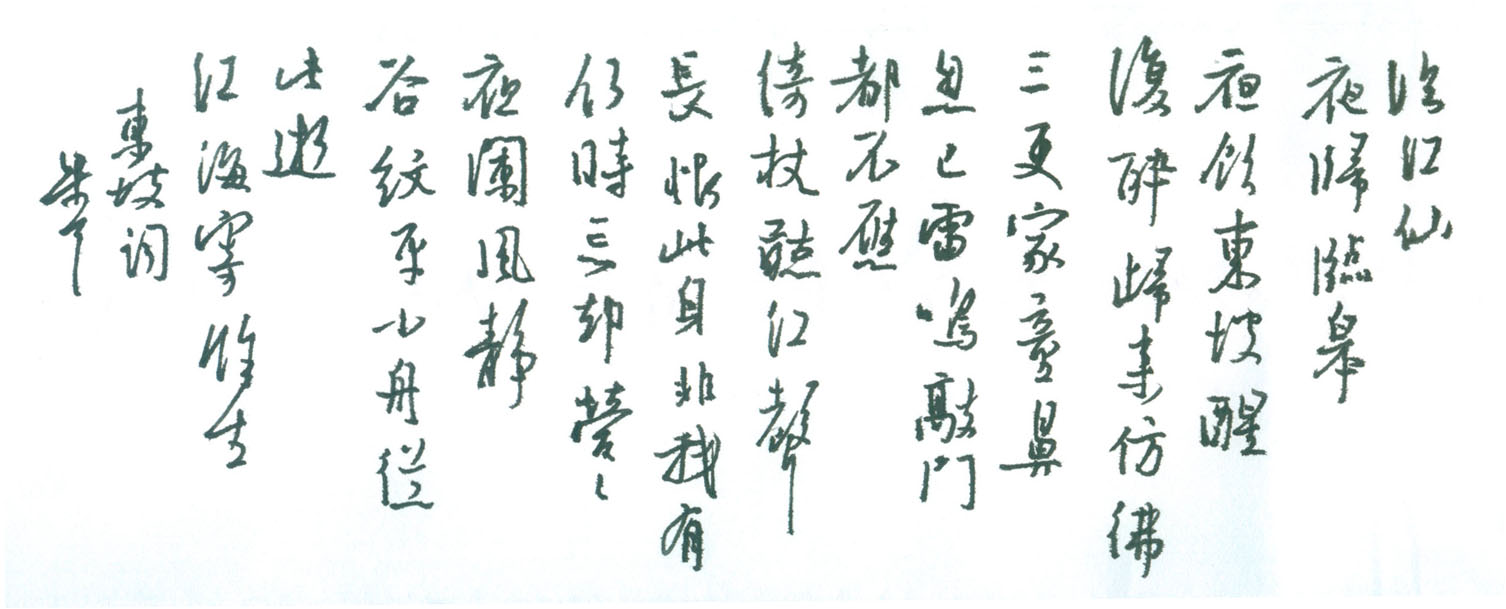 臨江仙
夜歸臨皋
夜飲東坡醒
復醉歸來仿彿
三更家童鼻
息已雷鳴敲門
都不應
倚杖聽江聲
長恨此身非我有
何時忘却營々
夜闌風靜
谷紋平小舟從
此逝
江海寄餘生
東坡詞